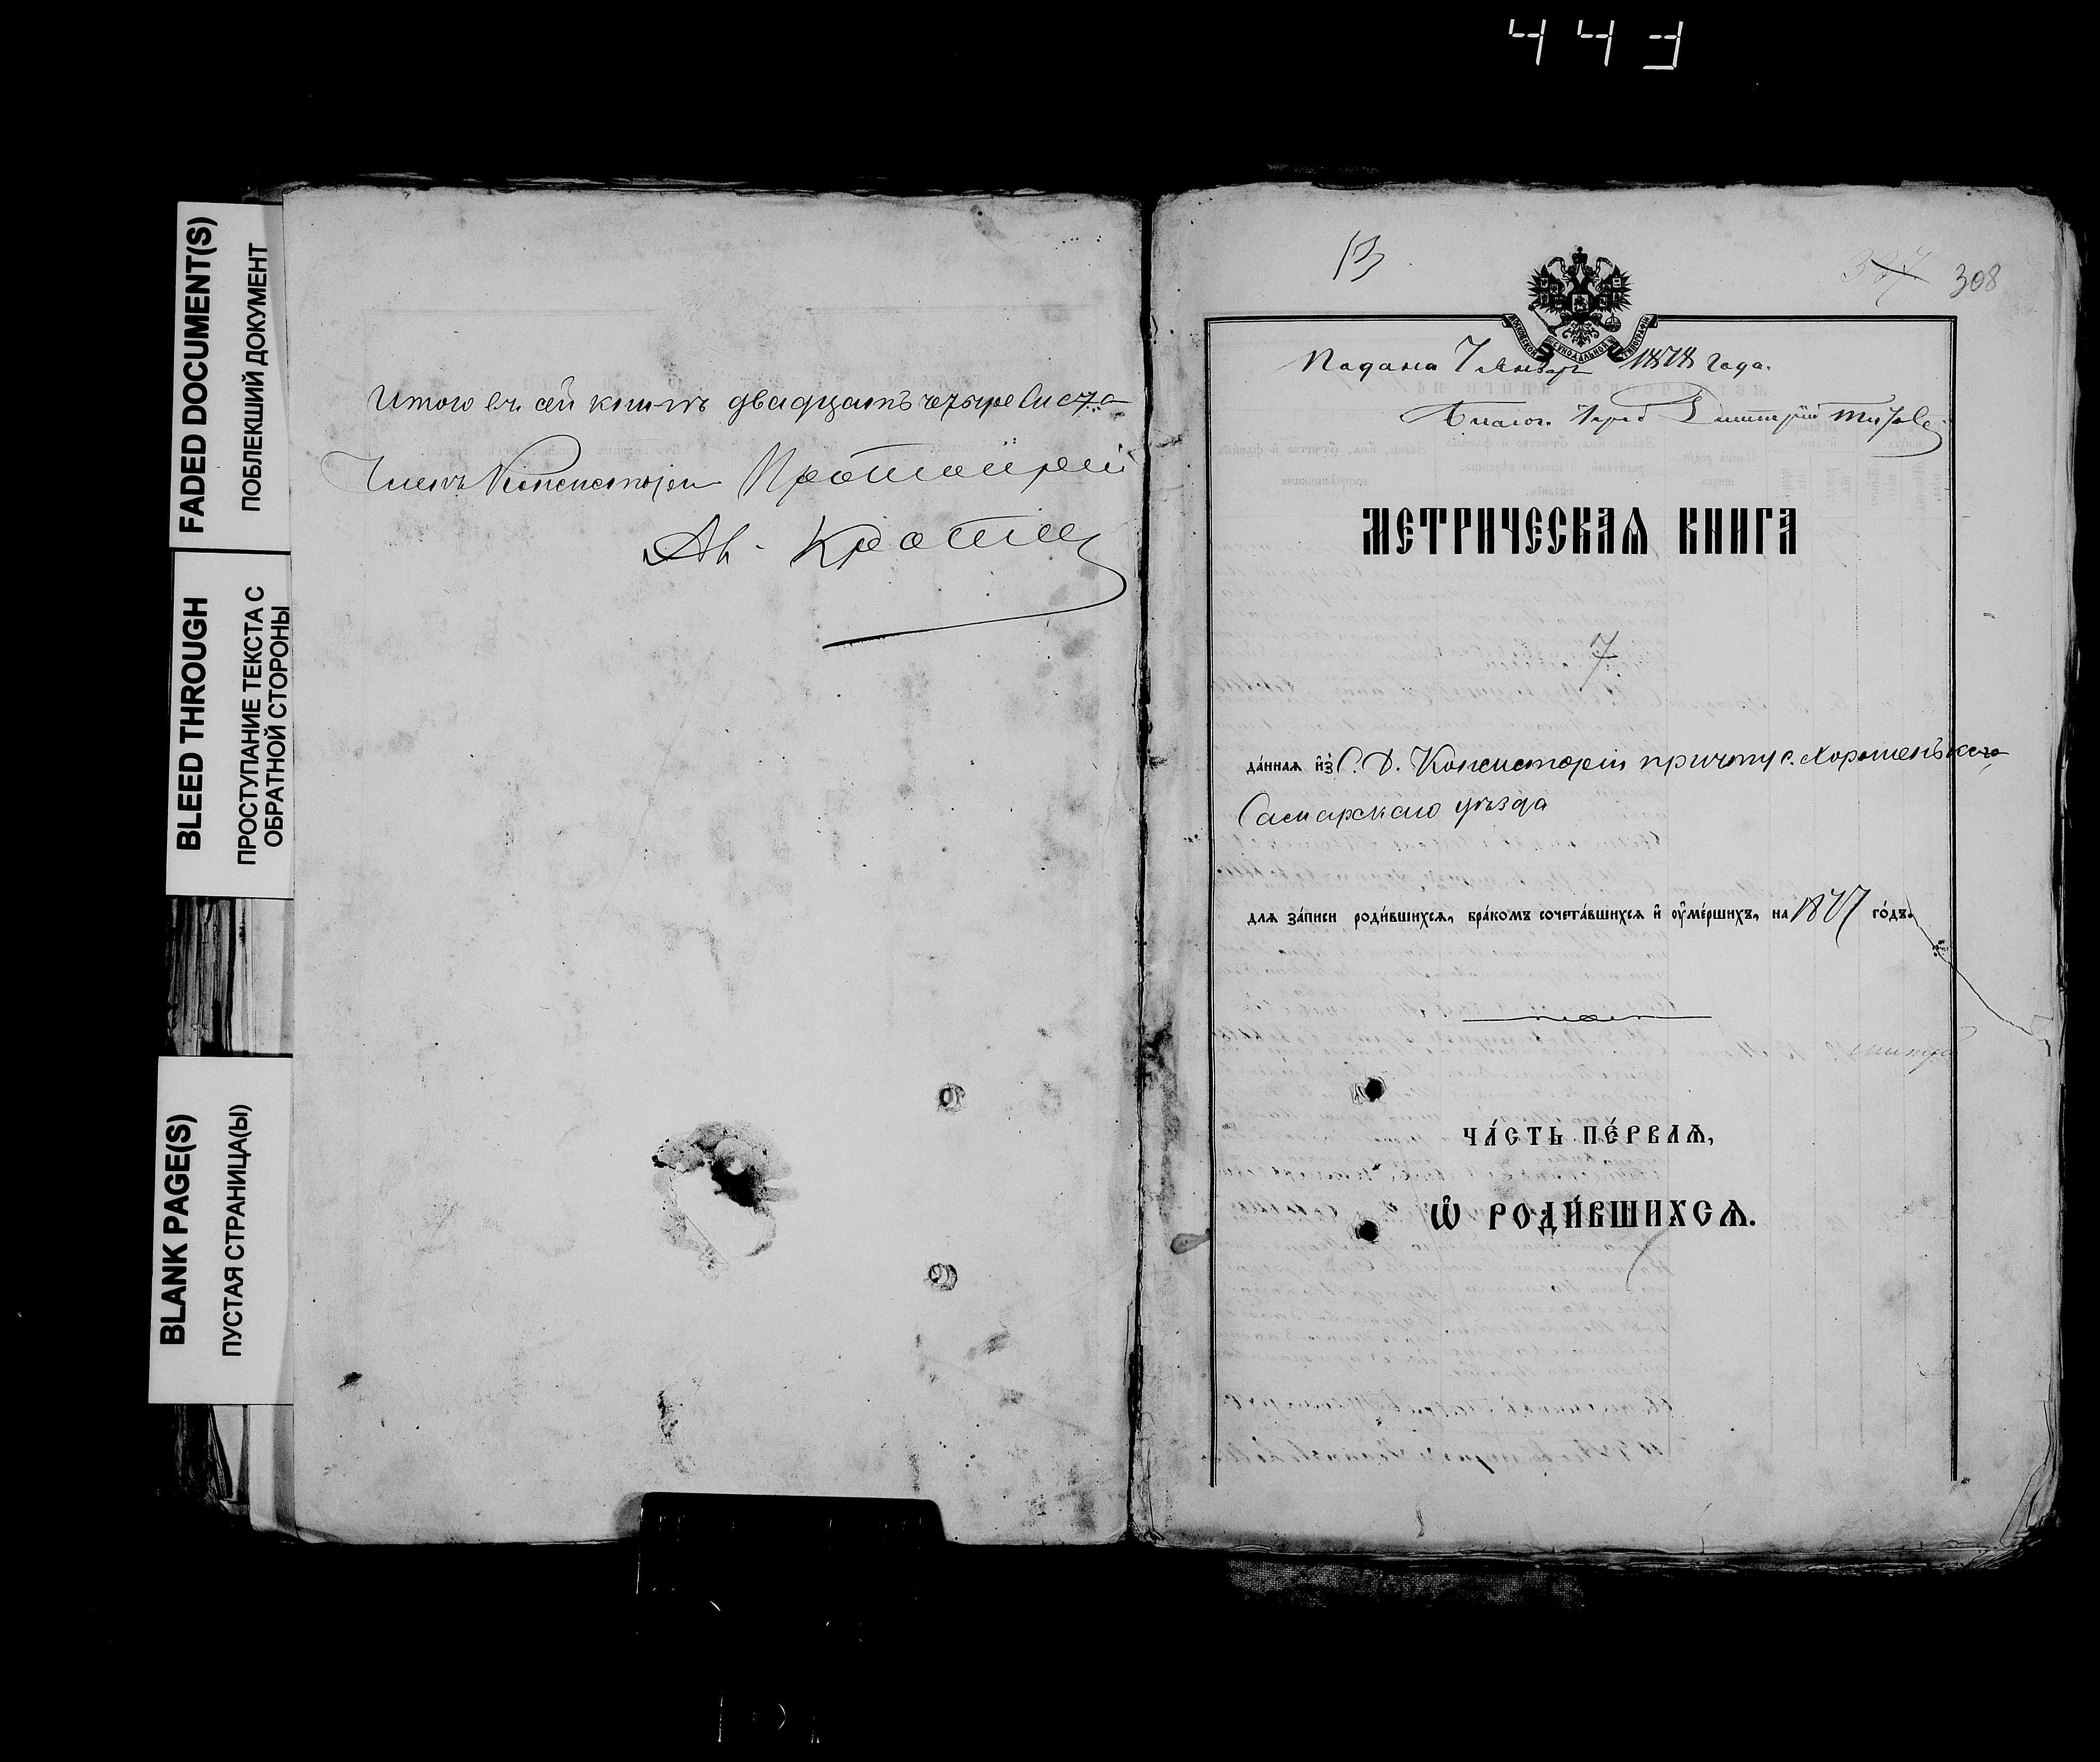 443
FADED DOCUMENT(S)
ПОБЛЕКШИЙ ДОКУМЕНТ
BLEED THROUGH
ПРОСТУПАНИЕ ТЕКСТА С
ОБРАТНОЙ СТОРОНЫ
BLANK PAGE(S)
ПУСТАЯ СТРАНИЦА(Ы)
Итого въ сей книгѣ двадцать четыре листа
Членъ Консисторіи Протоіерей
13
308
МОСКОВСКОЙ СѴНОДАЛЬНОЙ ТИПОГРАФІИ
Подана 7 Января 1878 года.
Благоч. Іерей Димитрій
МЕТРИЧЕСКАѦ КНИГА
7
да́нная и҆з̾ С. Д. Консисторіи причту с. Хорошенькаго
Самарскаго уѣзда
для за́писи роди́вшихся, бра́комъ сочета́вшихся и҆ оу҆ме́ршихъ, на 1877 го́дъ.
ЧА́СТЬ ПЕ́РВАѦ,
Ѡ҆ РОДИ́ВШИХСѦ.